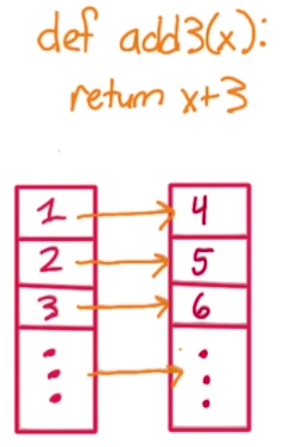 def add3(x):
return x+3
1 4
2 5
3 6